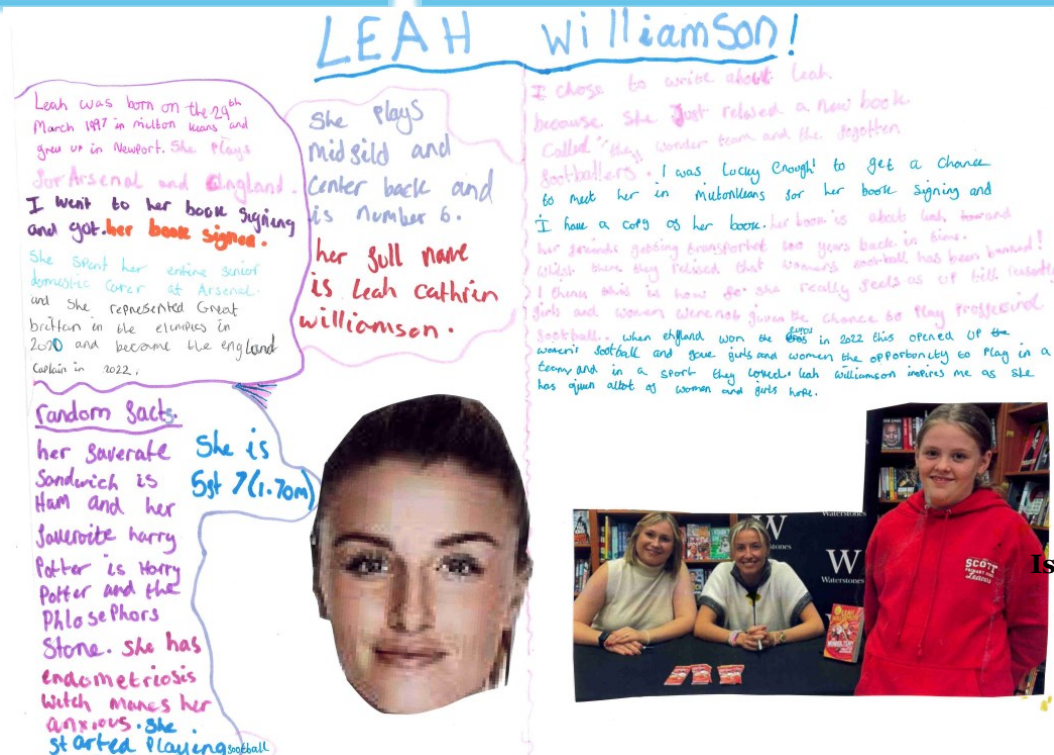 LEAH Williamson!
Leah was born on the 29th
March 1997 in milton keans and
grew up in Newport. She plays
for Arsenal and England.
I went to her book signing
and got her book signed.
She spent her entire senior
domestic carer at Arsenal.
and she represented Great
brittan in the elimpics in
2020 and become the england
captain in 2022.
She plays
midfild and
center back and
is number 6.
her full name
is Leah Cathrin
williamson.
random facts.
her faverate
Sandwich is
Ham and her
faveroite harry
Potter is Harry
Potter and the
Phlosephors
Stone. she has
endometriosis
witch makes her
anxious. she
started playing football
She is
5ft 7 (1.70m)
I chose to write about Leah.
because she Just relesed a new book
called "they wonder team and the forgotten
footballers. I was lucky enough to get a chance
to meet her in miltonkeans for her book signing and
I have a copy of her book. her book is about leah and
her friends getting transportet 100 years back in time.
Whilst there they relised that womans football has been banned!
I think this is how she really feels as up till recently
girls and women were not given the chance to play
football. when england won the euros in 2022 this opened up the
women's football and gave girls and women the opportonity to play in a
team and in a sport they loved. leah williamson inspires me as she
has given allot of women and girls hope.
W
Waterstones
W
Waterstones
SCOTT
Leavers
Is